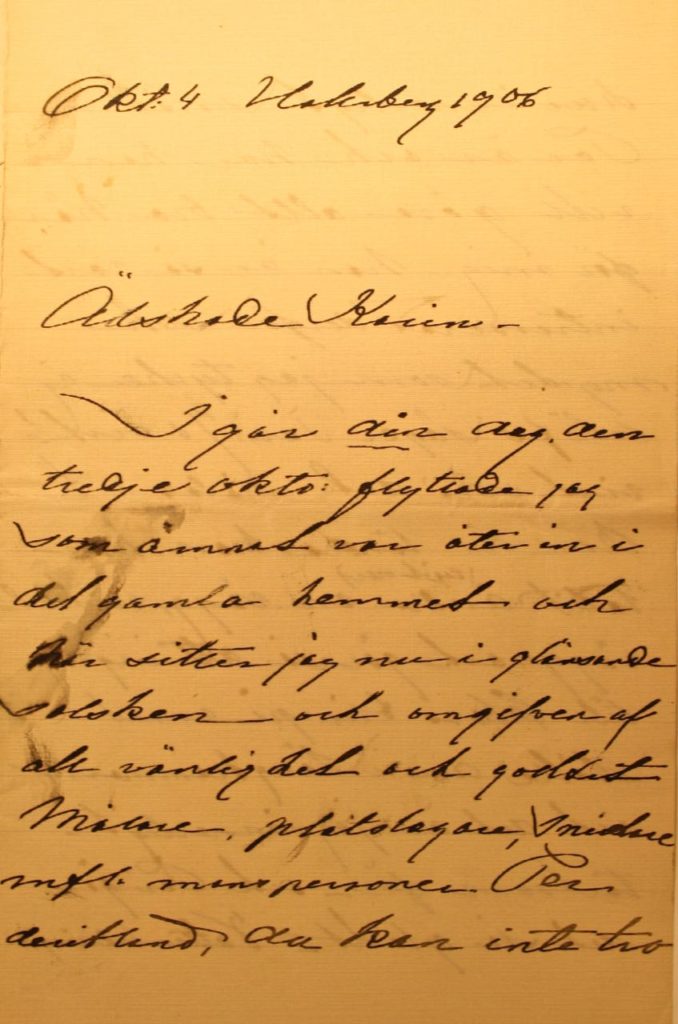 Okt. 4 1906
Älskade Karin –
I går din dag, den
tredje okto: flyttade jag
som ämnat var åter in i
det gamla hemmet och
här sitter jag nu i glänsande
solsken och omgifven af
all vänlighet och godhet
Målare, plåtslagare, snickare
m fl. manspersoner. Per
deribland, du kan inte tro